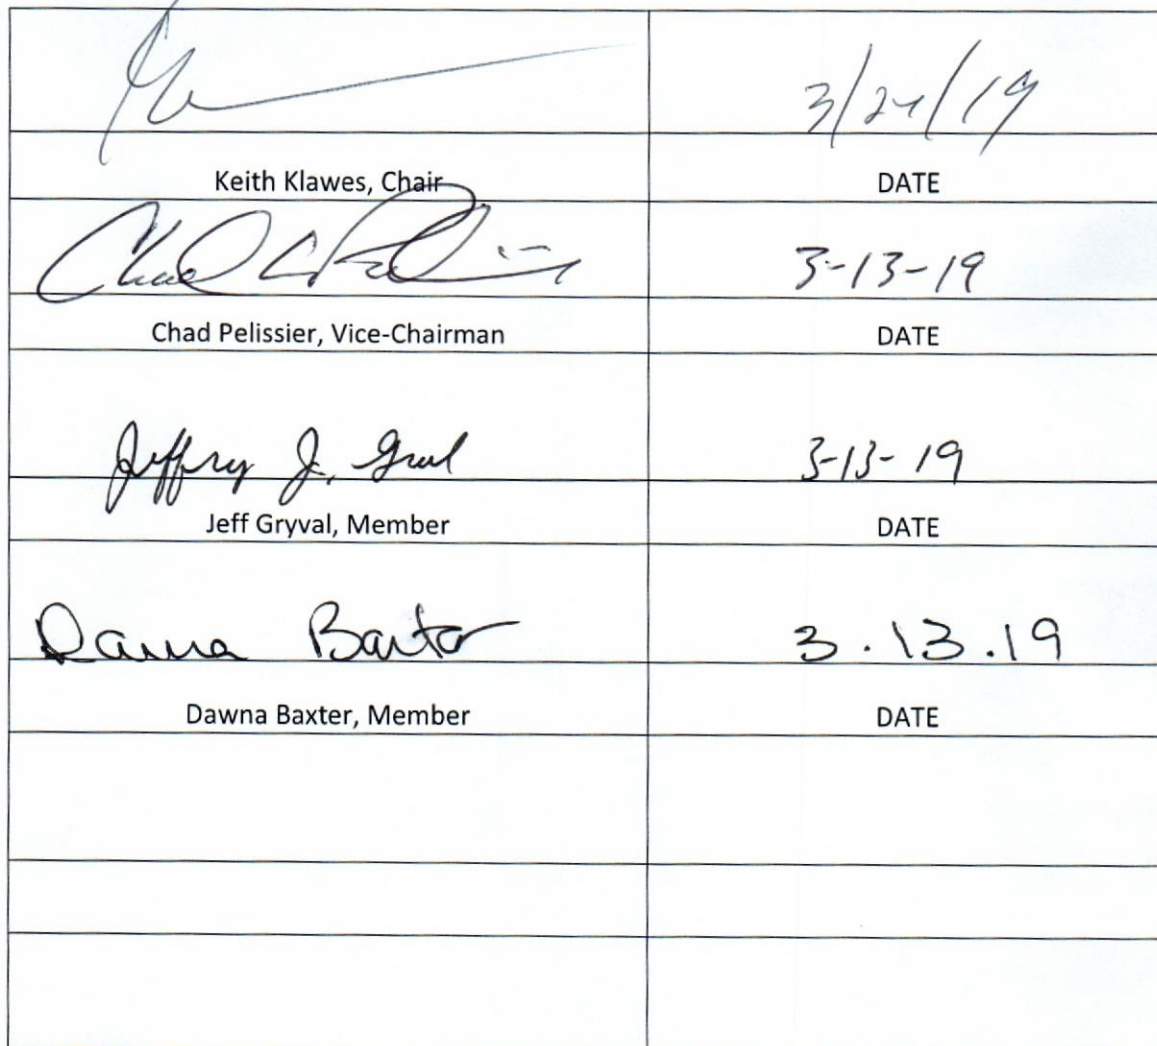 3/24/19
Keith Klawes, Chair DATE
Chad C Pelissier 3-13-19
Chad Pelissier, Vice-Chairman DATE
Jeffry J. Gryval 3-13-19
Jeff Gryval, Member DATE
Dawna Baxter 3.13.19
Dawna Baxter, Member DATE